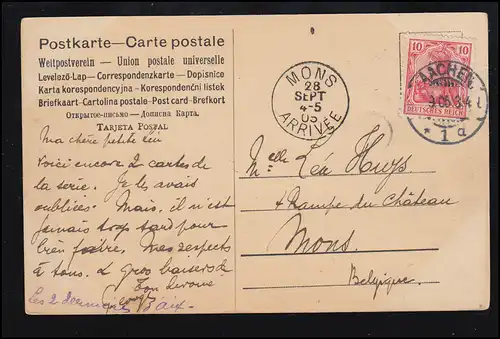 Postkarte—Carte postale
Weltpostverein — Union postale universelle
Levelező-Lap — Correspondenzkarte — Dopisnice
Karta korespondencyjna — Korespondenční lístek
Briefkaart-Cartolina postale-Post card-Brefkort
Открытое-письмо—Дописна Карта.
TARJETA POSTAL
Ma chère petite Léa
Voici encore 2 cartes de
la série. Je les avais
oubliées. Mais, il n'est
jamais trop tard pour
bien faire. Mes respects
à tous. 2 gros baisers de
Ton
Les 2 dernières d'Aix
MONS
28
SEPT
4-5
05
ARRIVÉE
10 10
DEUTSCHES REICH
AACHEN
* 1 d
Melle Léa Huys
4 Rampe du Château
Mons.
Belgique.